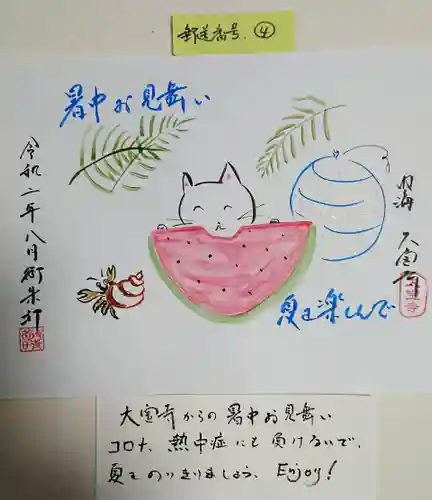 郵送番号 ④
暑中お見舞い
令和二年八月御朱印
内海 大宝寺
夏を楽しんで
大宝寺からの暑中お見舞い
コロナ、熱中症にも負けないで、
夏をのりきりましょう。Enjoy!